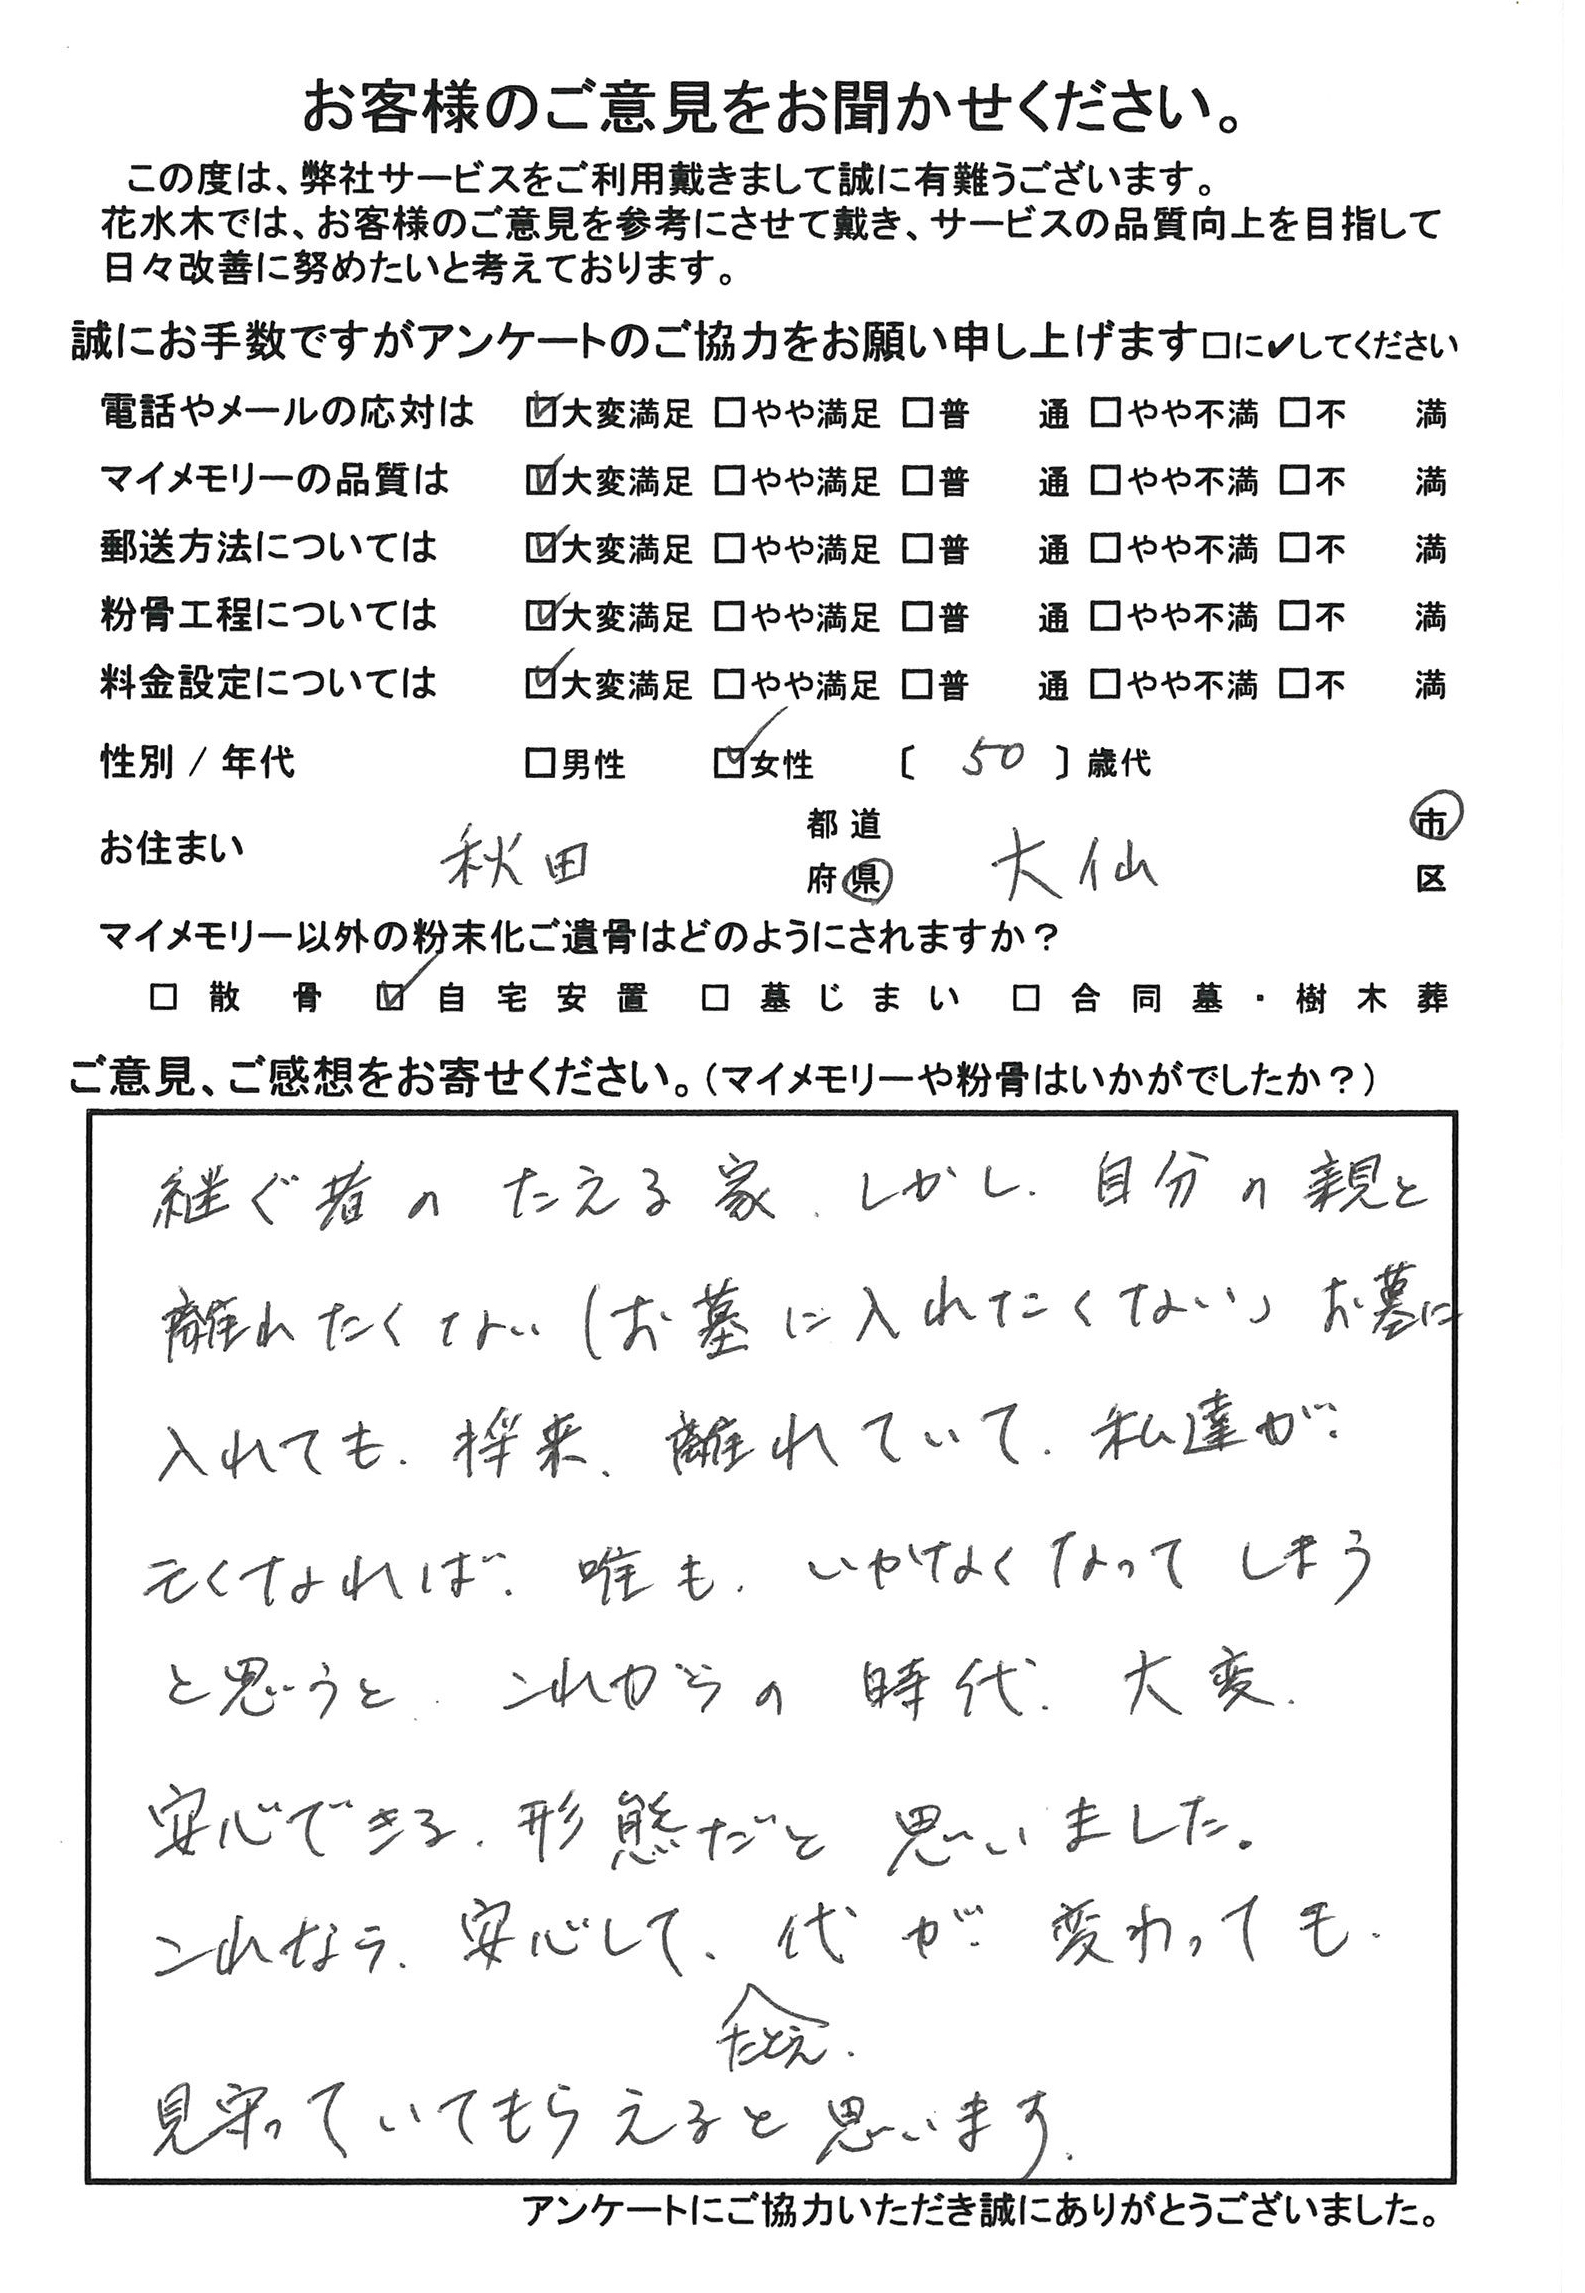 お客様のご意見をお聞かせください。
この度は、弊社サービスをご利用戴きまして誠に有難うございます。
花水木では、お客様のご意見を参考にさせて戴き、サービスの品質向上を目指して
日々改善に努めたいと考えております。
誠にお手数ですがアンケートのご協力をお願い申し上げます□に✔してください
電話やメールの応対は ☑大変満足 □やや満足 □普 通 □やや不満 □不 満
マイメモリーの品質は ☑大変満足 □やや満足 □普 通 □やや不満 □不 満
郵送方法については ☑大変満足 □やや満足 □普 通 □やや不満 □不 満
粉骨工程については ☑大変満足 □やや満足 □普 通 □やや不満 □不 満
料金設定については ☑大変満足 □やや満足 □普 通 □やや不満 □不 満
性別 / 年代 □男性 ☑女性 〔 50 〕歳代
お住まい 秋田 都道府県 大仙 市区
マイメモリー以外の粉末化ご遺骨はどのようにされますか？
□ 散骨 ☑ 自宅安置 □ 墓じまい □ 合同墓・樹木葬
ご意見、ご感想をお寄せください。（マイメモリーや粉骨はいかがでしたか？）
継ぐ者の たえる家、しかし、自分の親と
離れたくない（お墓に入れたくない）お墓に
入れても、将来、離れていて、私達が、
亡くなれば、唯も、いかなくなってしまう
と思うと、これからの時代、大変、
安心できる、形態だと思いました。
これなら、安心して、代が変わっても、
たとえ、
見守っていてもらえると思います。
アンケートにご協力いただき誠にありがとうございました。